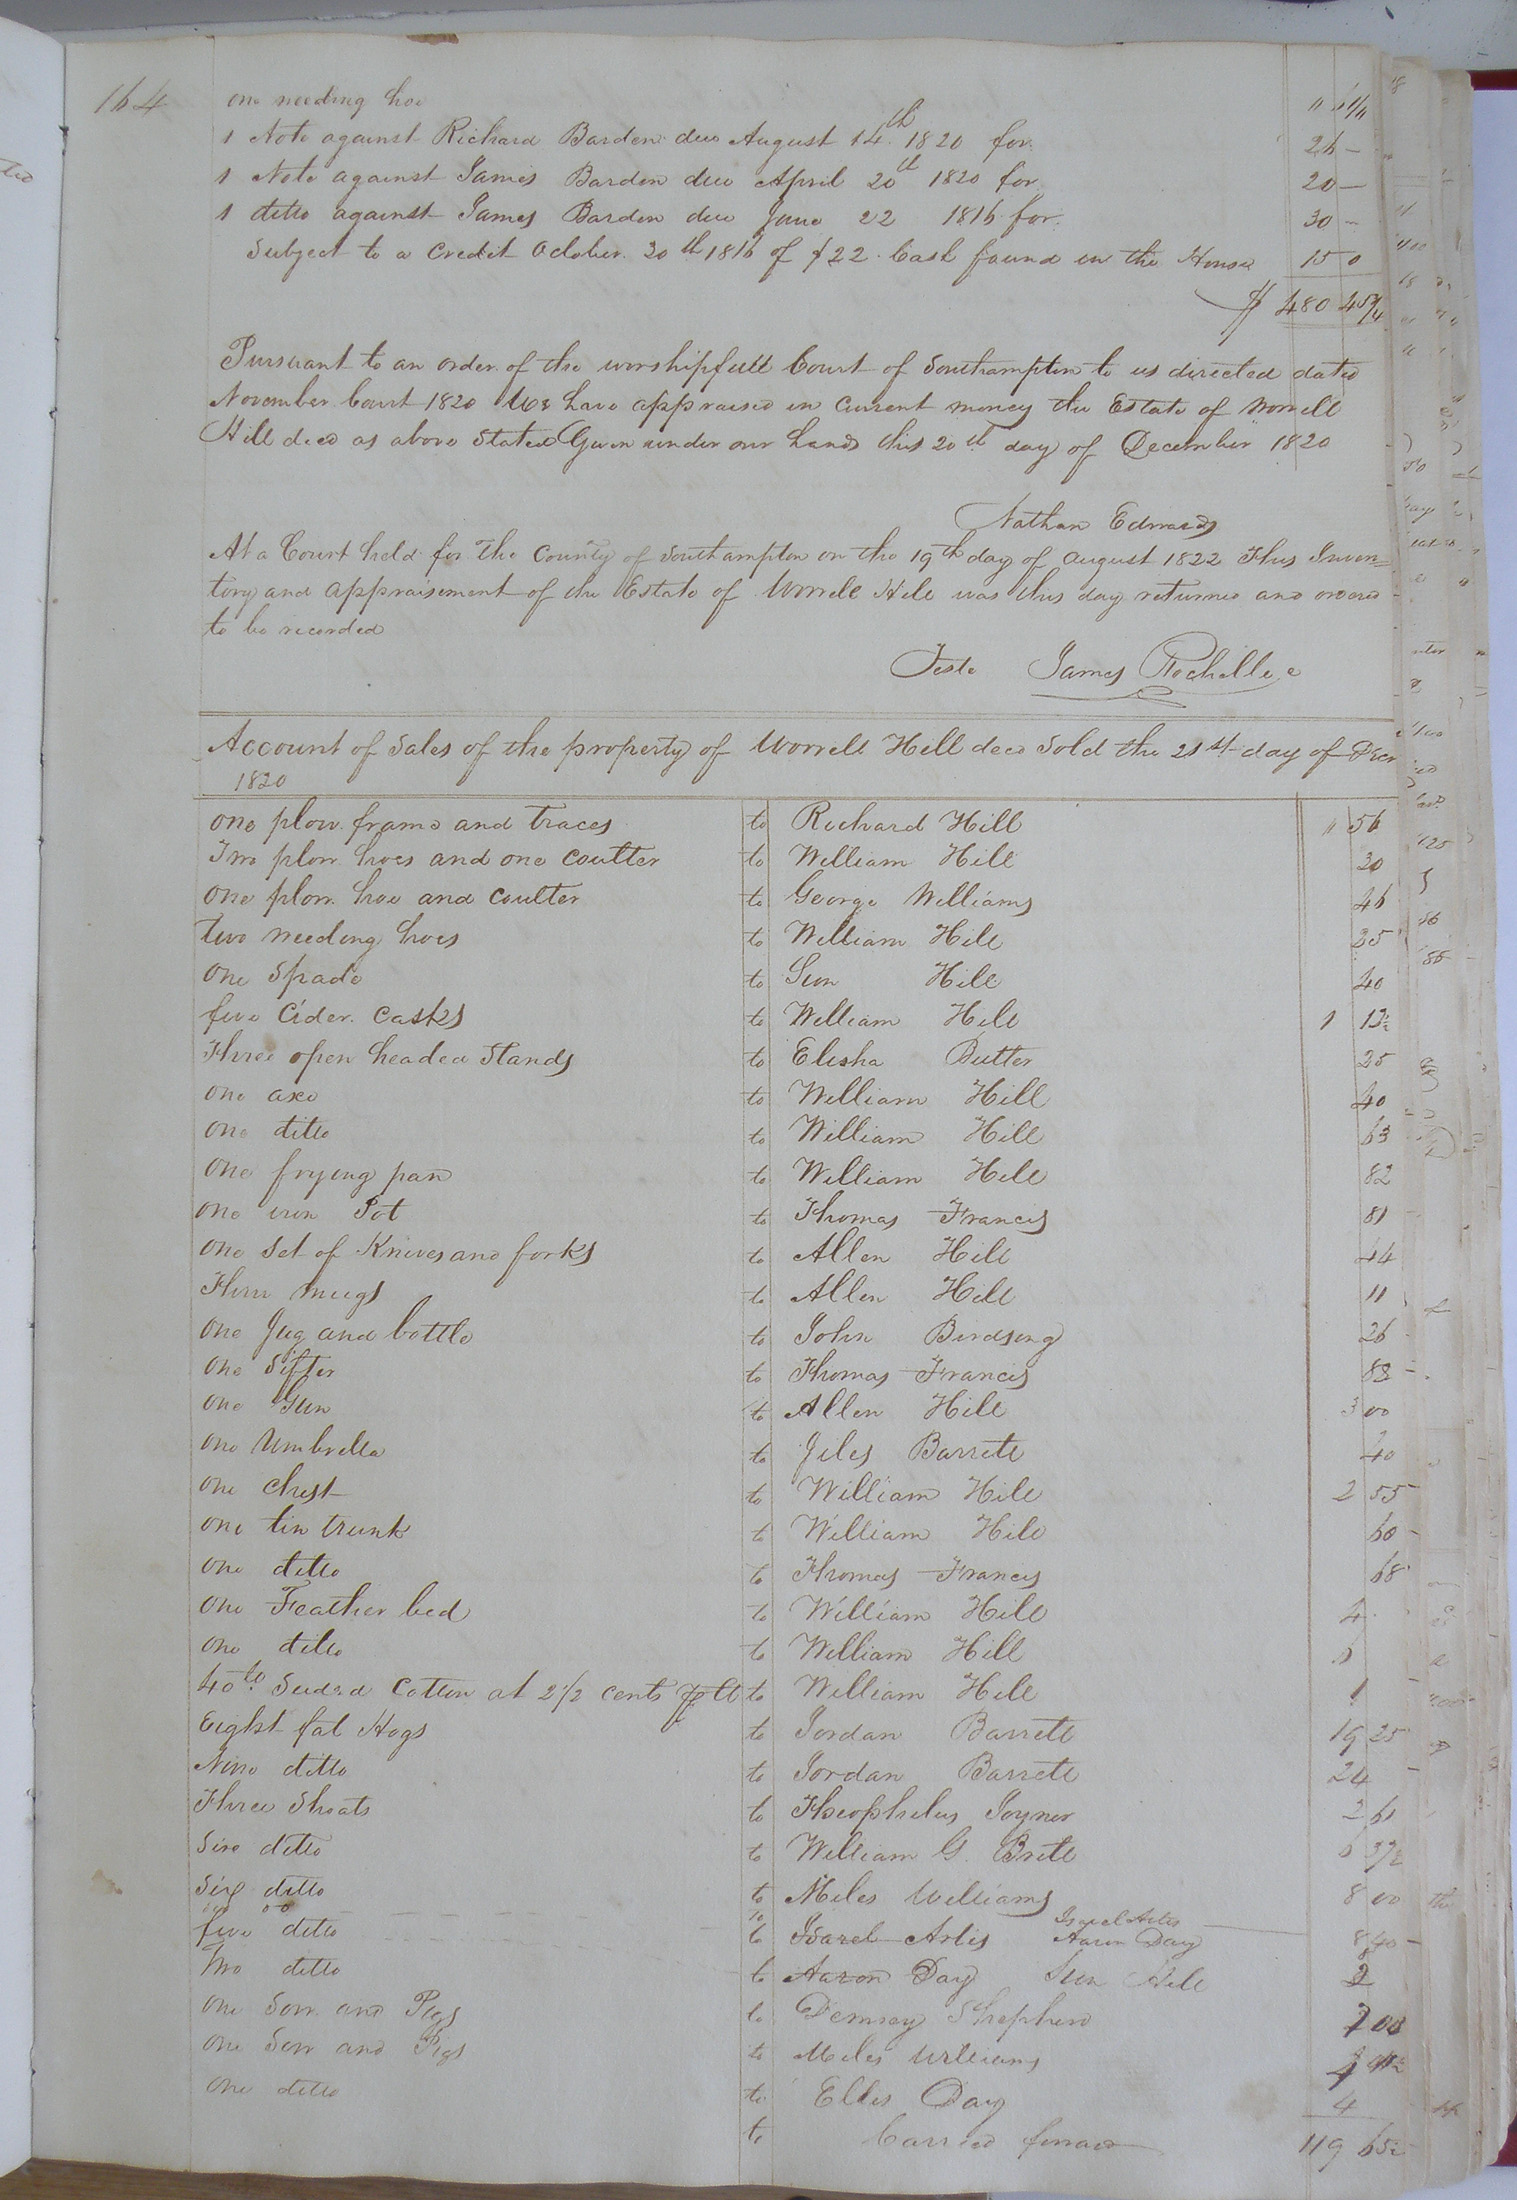 164
one weeding hoe
1 Note against Richard Barden due August 14th 1820 for 26 –
1 Note against James Barden due April 20th 1820 for 20 –
1 ditto against James Barden due June 22 1816 for 30 –
Subject to a Credit October 30th 1816 of $22. Cash found in the House 15 0
$ 480 45 3/4
Pursuant to an order of the worshipfull Court of Southampton to us directed dated
November Court 1820 We have appraised in current money the Estate of Worrell
Hill decd as above Stated Given under our hands this 20th day of December 1820
Nathan Edwards
At a Court held for The County of Southampton on the 19th day of August 1822 This Inven=
tory and appraisement of the Estate of Worrell Hill was this day returned and ordered
to be recorded
Teste James Rochelle c
Account of Sales of the property of Worrell Hill decd Sold the 21st day of Decr
1820
one plow frame and traces to Richard Hill " 56
Two plow hoes and one coulter to William Hill 30
one plow hoe and coulter to George Williams 46
Two weeding hoes to William Hill 25
one Spade to Sun Hill 40
five Cider Casks to William Hill 1 12½
Three open headed Stands to Elisha Butler 25
one axe to William Hill 40
one ditto to William Hill 63
one frying pan to William Hill 82
one iron Pot to Thomas Francis 81
one Set of Knives and forks to Allen Hill 44
Three mugs to Allen Hill 11
one Jug and bottle to John Birdsong 26
one Sifter to Thomas Francis 82 –
one Gun to Allen Hill 3 00
one Umbrella to Jiles Barrett 40
one Chest to William Hill 2 55
one tin trunk to William Hill 60
one ditto to Thomas Francis 68
one Feather bed to William Hill 4
one ditto to William Hill 6
40 lb Seeded Cotton at 2 1/2 cents p lb to William Hill 1
Eight fat Hogs to Jordan Barrett 19 25
Nine ditto to Jordan Barrett 24
Three Shoats to Theophilus Joyner 2 61
Six ditto to William G. Britt 6 37½
Six ditto to Miles Williams 8 00
five ditto to Isarel Artis Israel Artis Aaron Day 8 40
Two ditto to Aaron Day Sun Hill 2
one Sow and Pigs to Demsey Shepherd 7 00
one Sow and Pigs to Miles Williams 4
one ditto to Elles Day 4
to Carried forward 119 65½